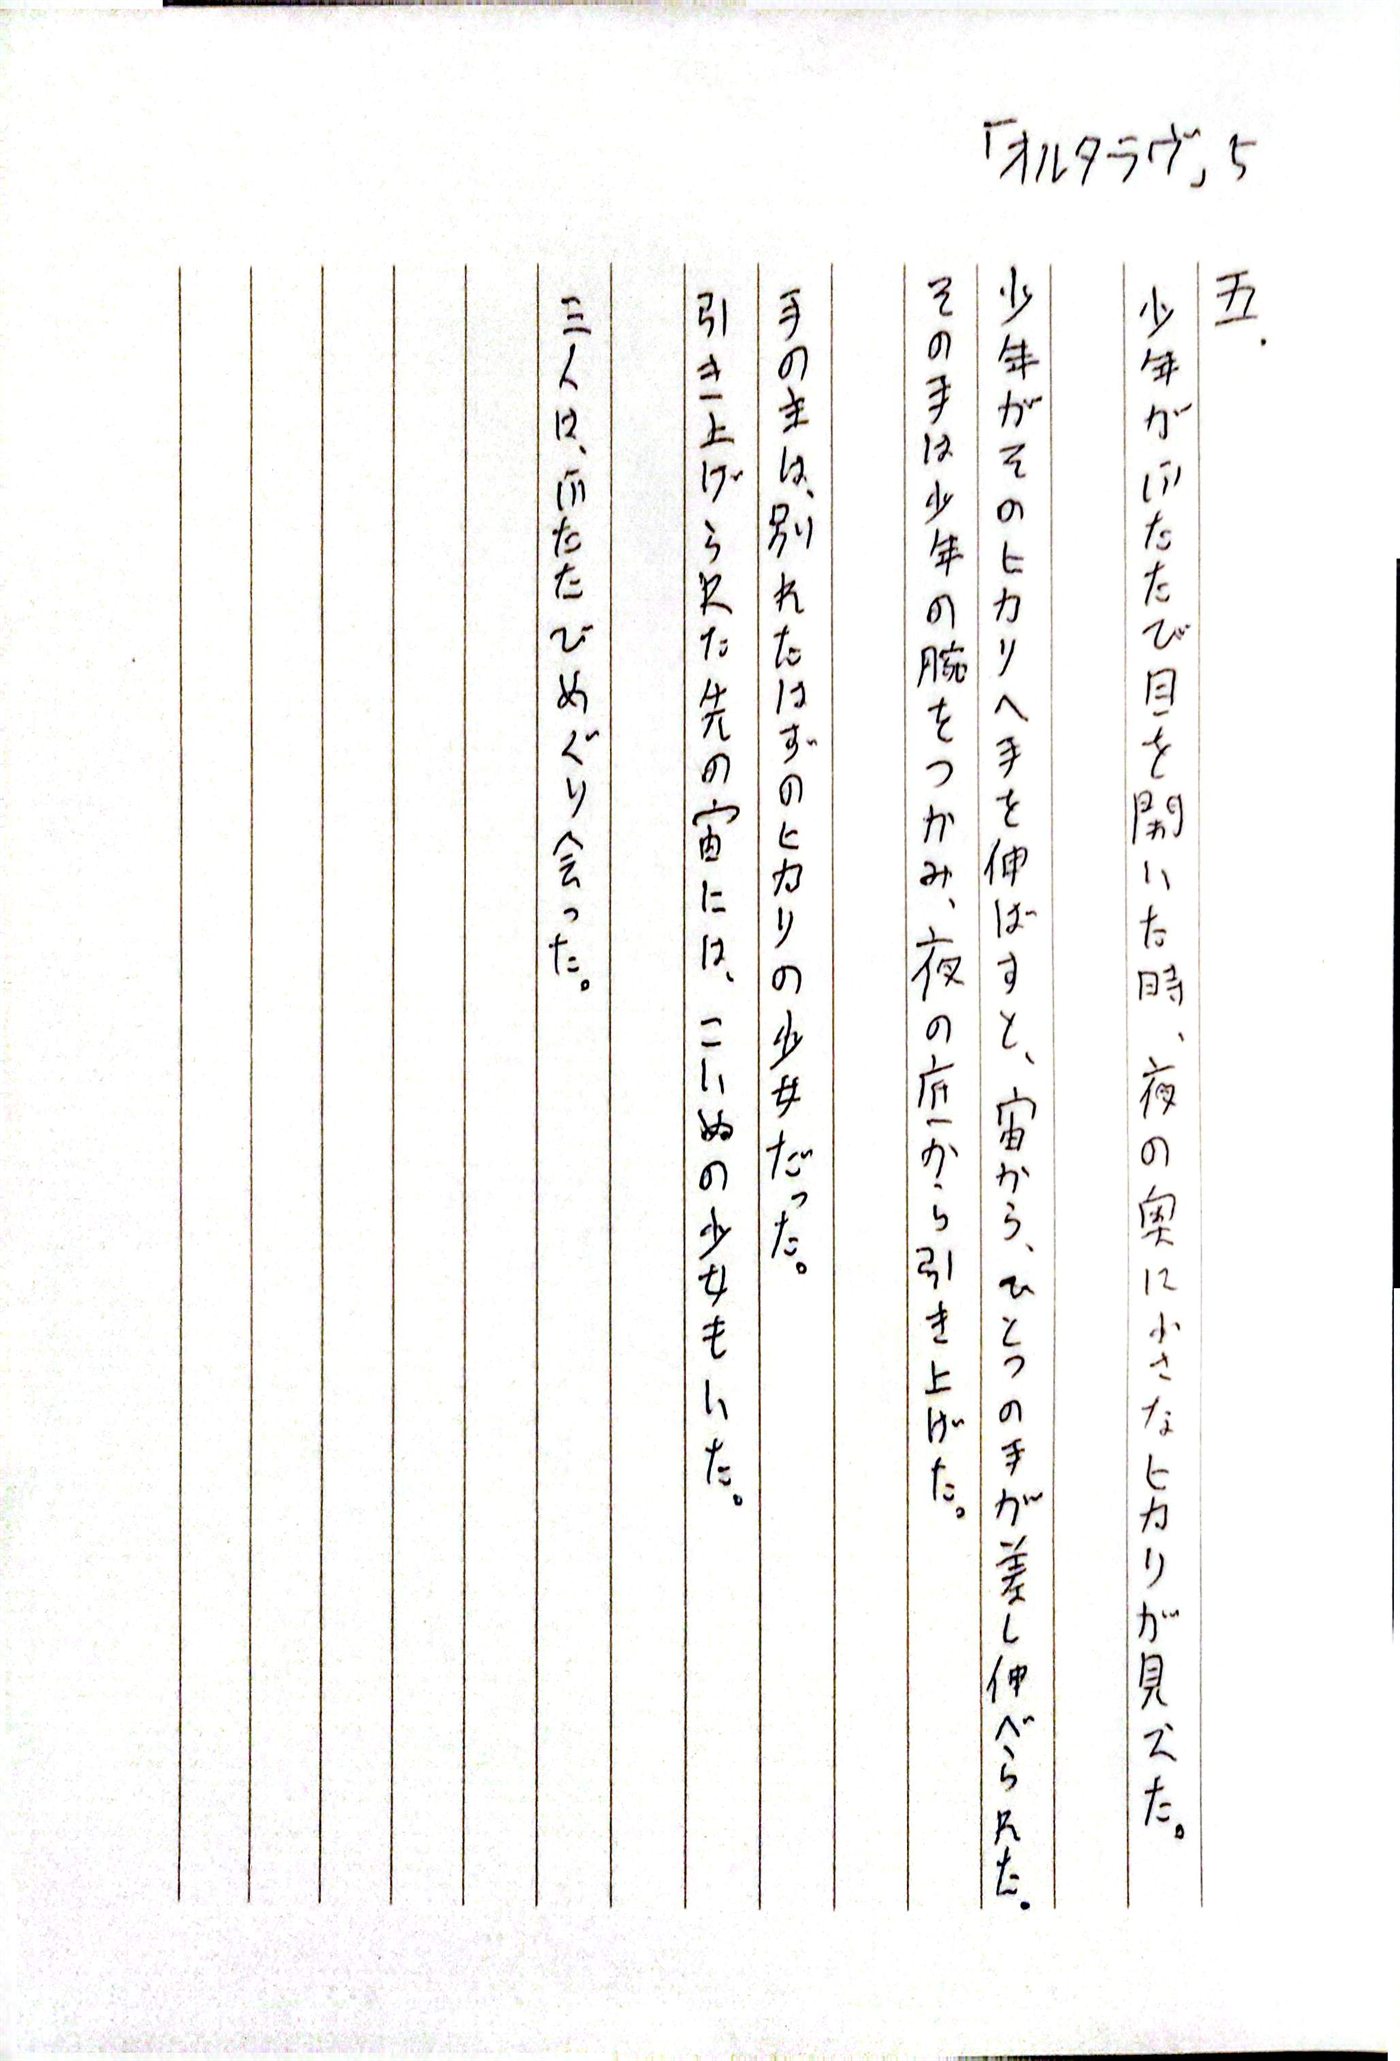 「オルタラヴ」5
五.
少年がふたたび目を開いた時、夜の奥に小さなヒカリが見えた。
少年がそのヒカリへ手を伸ばすと、宙から、ひとつの手が差し伸べられた。
その手は少年の腕をつかみ、夜の底から引き上げた。
手の主は、別れたはずのヒカリの少女だった。
引き上げられた先の宙には、こいぬの少女もいた。
三人は、ふたたびめぐり会った。